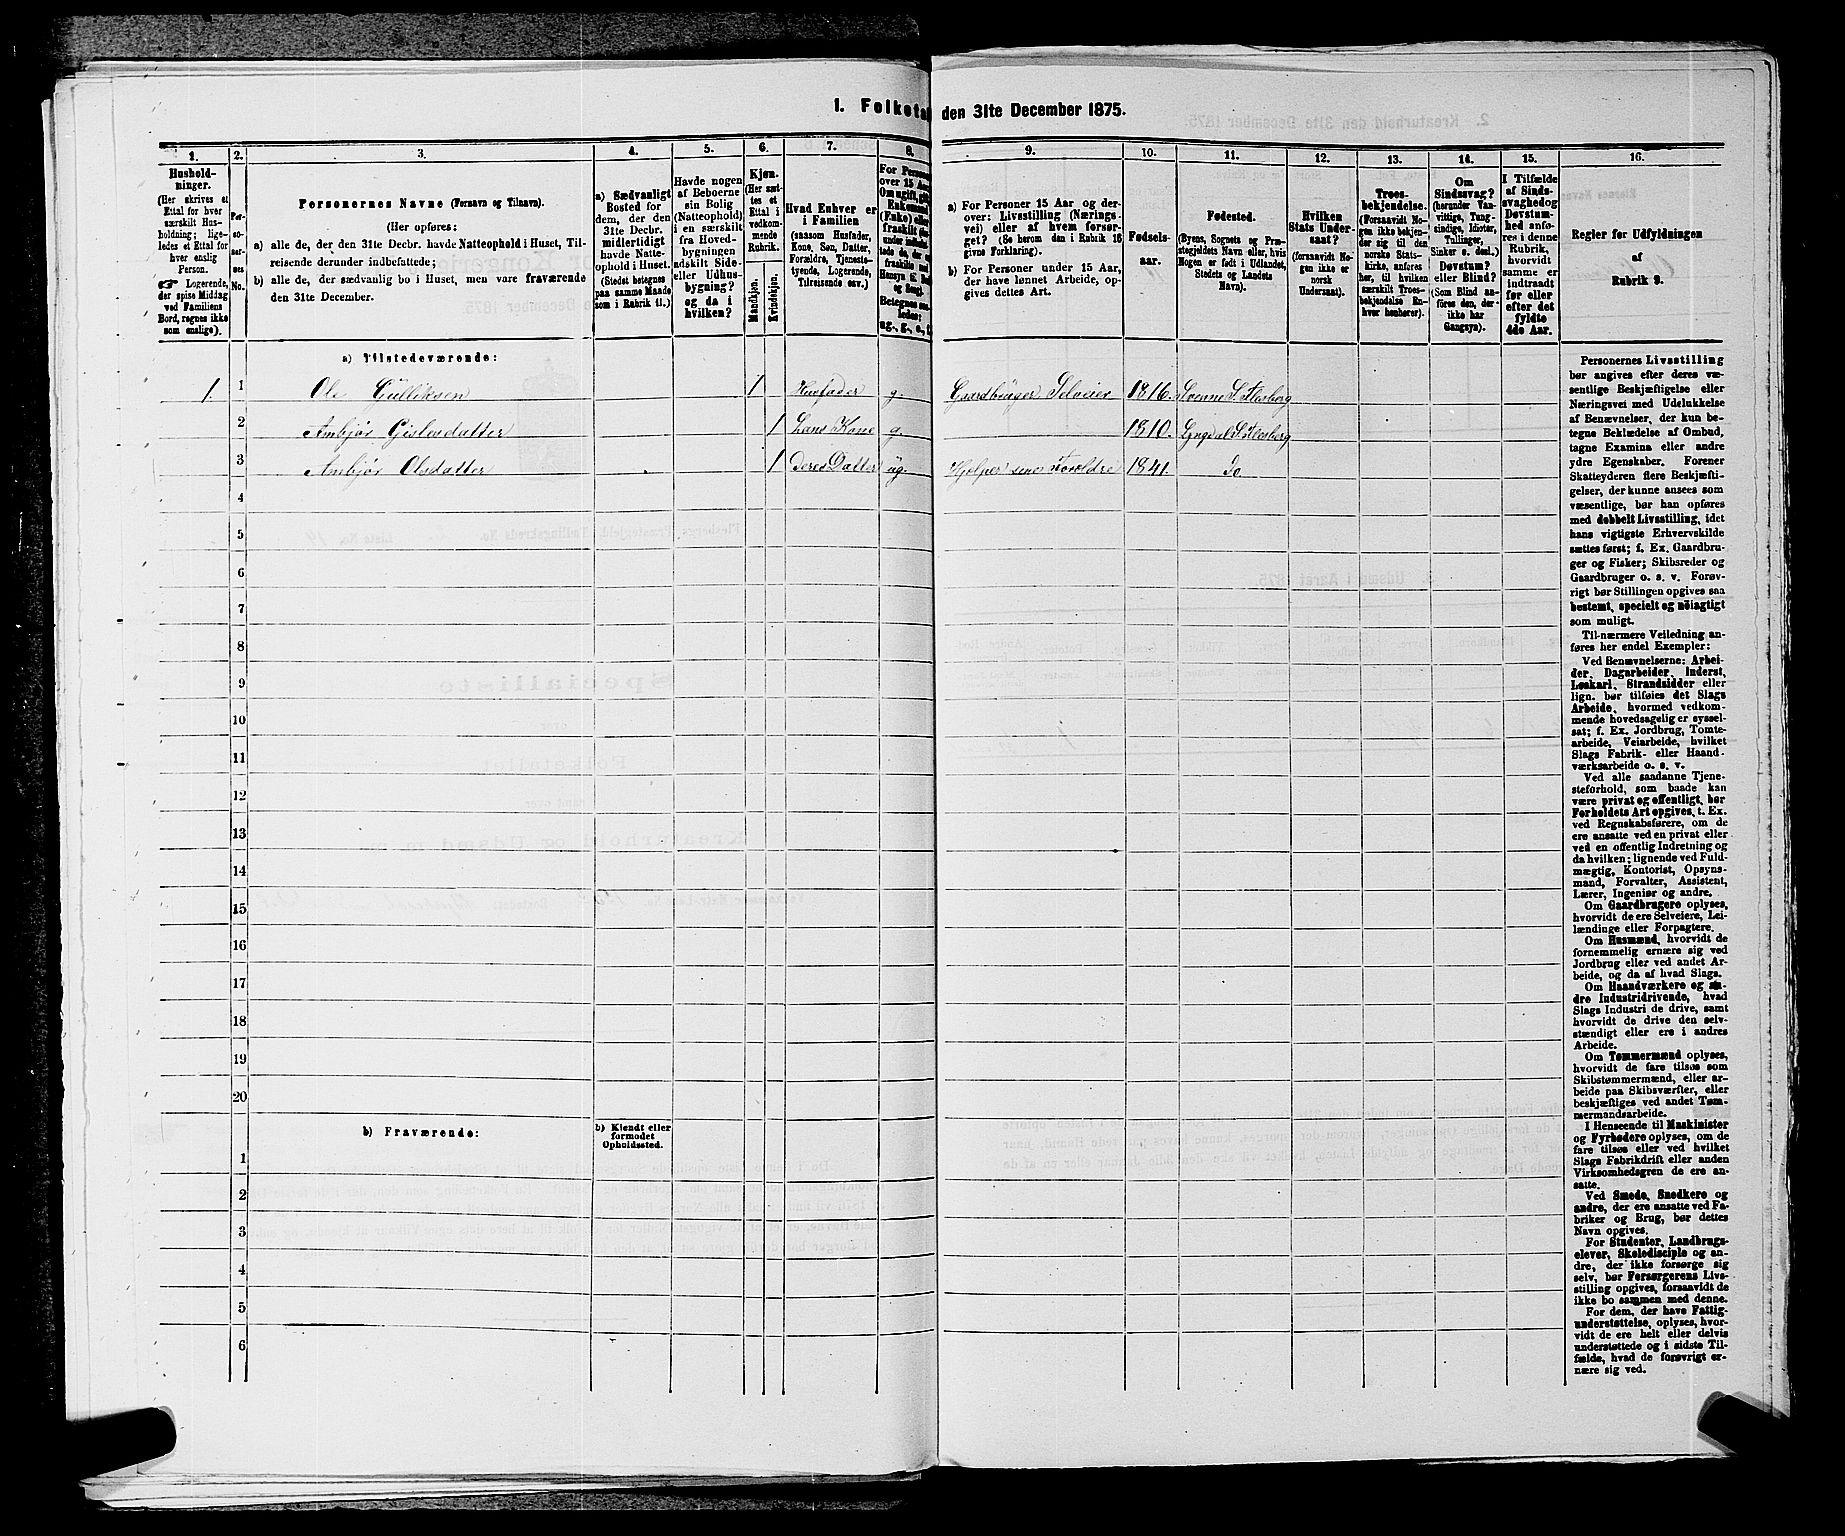 1. Folketal den 31te December 1875.
1. 2. 3. 4. 5. 6. 7. 8. 9. 10. 11. 12. 13. 14. 15. 16.
Hushold-
ninger.
(Her skrives et
Ettal for hver
særskilt Hus-
holdning; lige-
ledes et Ettal for
hver enslig
Person.
☞ Logerende,
der spise Middag
ved Familiens
Bord, regnes ikke
som enslige).
Per-
so-
ner-
nes
No.
Personernes Navne (Fornavn og Tilnavn).
(Her opføres:
a) alle de, der den 31te Decbr. havde Natteophold i Huset, Til-
reisende derunder indbefattede;
b) alle de, der sædvanlig bo i Huset, men vare fraværende
den 31te December.
a) Sædvanligt
Bosted for
dem, der den
31te Decbr.
midlertidigt
havde Natte-
ophold i Huset.
(Stedet betegnes
paa samme Maade
som i Rubrik 11.)
Havde nogen
af Beboerne
sin Bolig
(Natteophold)
i en særskilt
fra Hoved-
bygningen
adskilt Side-
eller Udhus-
bygning?
og da i
hvilken?
Kjøn.
(Her sæt-
tes et
Ettal i
vedkom-
mende
Rubrik.
Mandkjøn.
Kvindekjøn.
Hvad Enhver er
i Familien
(saasom Husfader,
Kone, Søn, Datter,
Forældre, Tjeneste-
tyende, Logerende,
Tilreisende osv.)
a) For Personer 15 Aar og der-
over: Livsstilling (Nærings-
vei) eller af hvem forsør-
get? (Se herom den i Rubrik 16
givne Forklaring).
b) For Personer under 15 Aar,
der have lønnet Arbeide, op-
gives dettes Art.
Fødsels-
aar.
Fødested.
(Byens, Sognets og Præ-
stegjeldets Navn eller, hvis
Nogen er født i Udlandet,
Stedets og Landets
Navn).
Hvilken
Stats Under-
saat?
(forsaavidt No-
gen ikke er
norsk
Undersaat).
Troes-
bekjendelse.
(Forsaavidt No-
gen ikke bekjen-
der sig til den
norske Stats-
kirke, anføres
her, til hvilken
særskilt Troes-
bekjendelse En-
hver henhører).
Om
Sindssvag?
(herunder Van-
vittige, Tung-
sindige, Idioter,
Tullinger,
Sinker o. desl.)
Døvstum?
eller Blind?
(Som Blind an-
føres den, der
ikke har
Gangsyn).
I Tilfælde
af Sinds-
svaghed og
Døvstum-
hed anfø-
res i denne
Rubrik,
hvorvidt
samme er
indtraadt
før eller
efter det
fyldte
4de Aar.
Regler for Udfyldningen
af
Rubrik 9.
a) Tilstedeværende:
1. 1 Ole Gulliksen 1 Husfader g. Gaardbruger Selveier 1816. Svenne S. Flesberg
2 Anbjør Gislesdatter 1 hans Kone g. 1810. Lyngdal S. Flesberg
3 Anbjør Olsdatter 1 deres Datter ug. Hjælper sine Forældre 1841. Do
4
5
6
7
8
9
10
11
12
13
14
15
16
17
18
19
20
b) Fraværende:
b) Kjendt eller
formodet
Opholdssted.
1
2
3
4
5
6
Personernes Livsstilling
bør angives efter deres væ-
sentlige Beskjæftigelse eller
Næringsvei med Udelukkelse
af Benævnelser, der kun be-
tegne Beklædelse af Ombud,
tagne Examina eller andre
ydre Egenskaber. Forener
Skatteyderen flere Beskjæfti-
gelser, der kunne ansees som
væsentlige, bør han opføres
med dobbelt Livsstilling, idet
hans vigtigste Erhvervskilde
sættes først; f. Ex. Gaardbru-
ger og Fisker; Skibsreder og
Gaardbruger o. s. v. Forøv-
rigt bør Stillingen opgives saa
bestemt, specielt og nøiagtigt
som muligt.
Til nærmere Veiledning an-
føres her endel Exempler:
Ved Benævnelserne: Arbei-
der, Dagarbeider, Inderst,
Løskarl, Strandsidder eller
lign. bør tilføies det Slags
Arbeide, hvormed vedkom-
mende hovedsagelig er syssel-
sat; f. Ex. Jordbrug, Tomte-
arbeide, Veiarbeide, hvilket
Slags Fabrik- eller Haand-
værksarbeide o. s. v.
Ved alle saadanne Tjene-
steforhold, som baade kan
være privat og offentligt, bør
Forholdets Art opgives, t. Ex.
ved Regnskabsførere, om de
ere ansatte ved en privat eller
ved en offentlig Indretning og
da hvilken; lignende ved Fuld-
mægtig, Kontorist, Opsyns-
mand, Forvalter, Assistent,
Lærer, Ingeniør og andre.
Om Gaardbrugere oplyses,
hvorvidt de ere Selveiere, Lei-
lændinge eller Forpagtere.
Om Husmænd, hvorvidt de
fornemmelig ernære sig ved
Jordbrug eller ved andet Ar-
beide, og da af hvad Slags.
Om Haandværkere og an-
dre Industridrivende, hvad
Slags Industri de drive, samt
hvorvidt de drive den selv-
stændigt eller ere i andres
Arbeide.
Om Tømmermænd oplyses,
hvorvidt de fare tilsøs som
Skibstømmermænd, eller ar-
beide paa Skibsværfter, eller
beskjæftiges ved andet Tøm-
mermandsarbeide.
I Henseende til Maskinister
og Fyrbødere oplyses, om de
fare tilsøs eller ved hvilket
Slags Fabrikdrift eller anden
Virksomhedsgren de ere an-
satte.
Ved Smede, Snedkere og
andre, der ere ansatte ved Fa-
briker og Brug, bør dettes
Navn opgives.
For Studenter, Landbrugs-
elever, Skoledisciple og an-
dre, der ikke forsørge sig
selv, bør Forsørgerens Livs-
stilling opgives, forsaavidt de
ikke bo sammen med denne.
For dem, der have Fattig-
understøttelse, oplyses, hvor-
vidt de ere helt eller delvis
understøttede og i sidste Til-
fælde, hvad de forøvrigt er-
nære sig ved.